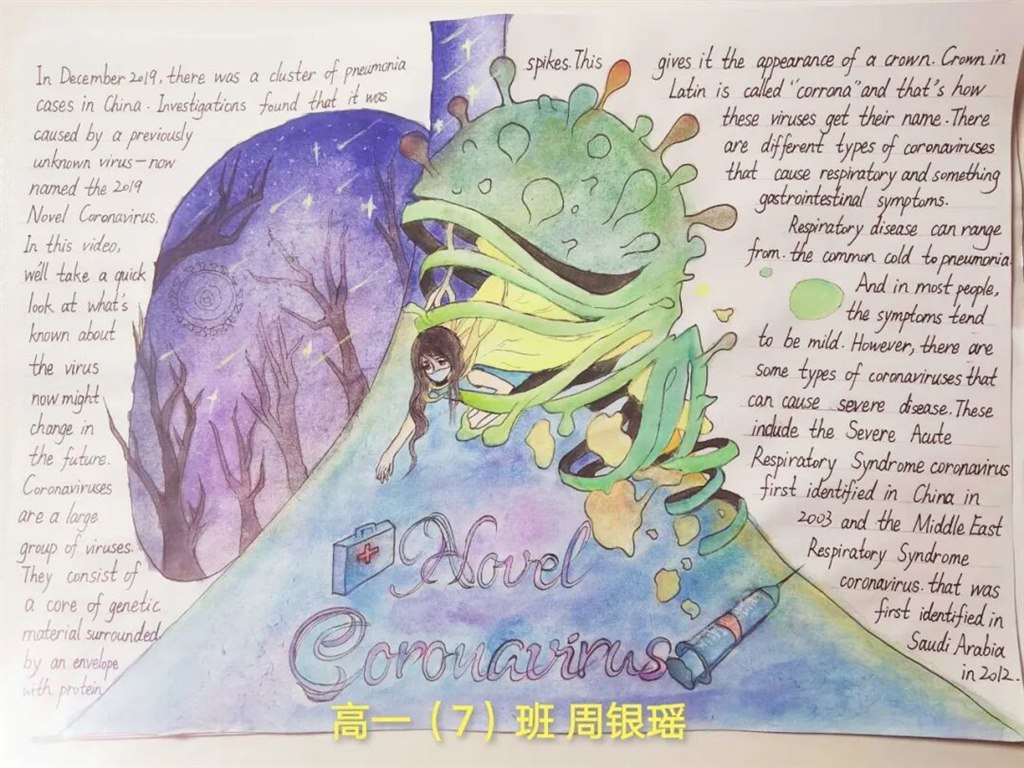 In December 2019, there was a cluster of pneumonia
cases in China. Investigations found that it was
caused by a previously
unknown virus—now
named the 2019
Novel Coronavirus.
In this video,
we'll take a quick
look at what's
known about
the virus
now might
change in
the future.
Coronaviruses
are a large
group of viruses.
They consist of
a core of genetic
material surrounded
by an envelope
with protein
spikes. This gives it the appearance of a crown. Crown in
Latin is called "corrona" and that's how
these viruses get their name. There
are different types of coronaviruses
that cause respiratory and something
gastrointestinal symptoms.
Respiratory disease can range
from. the common cold to pneumonia.
And in most people,
the symptoms tend
to be mild. However, there are
some types of coronaviruses that
can cause severe disease. These
include the Severe Acute
Respiratory Syndrome coronavirus
first identified in China in
2003 and the Middle East
Respiratory Syndrome
coronavirus. that was
first identified in
Saudi Arabia
in 2012.
Novel
Coronavirus
高一（7）班 周银瑶